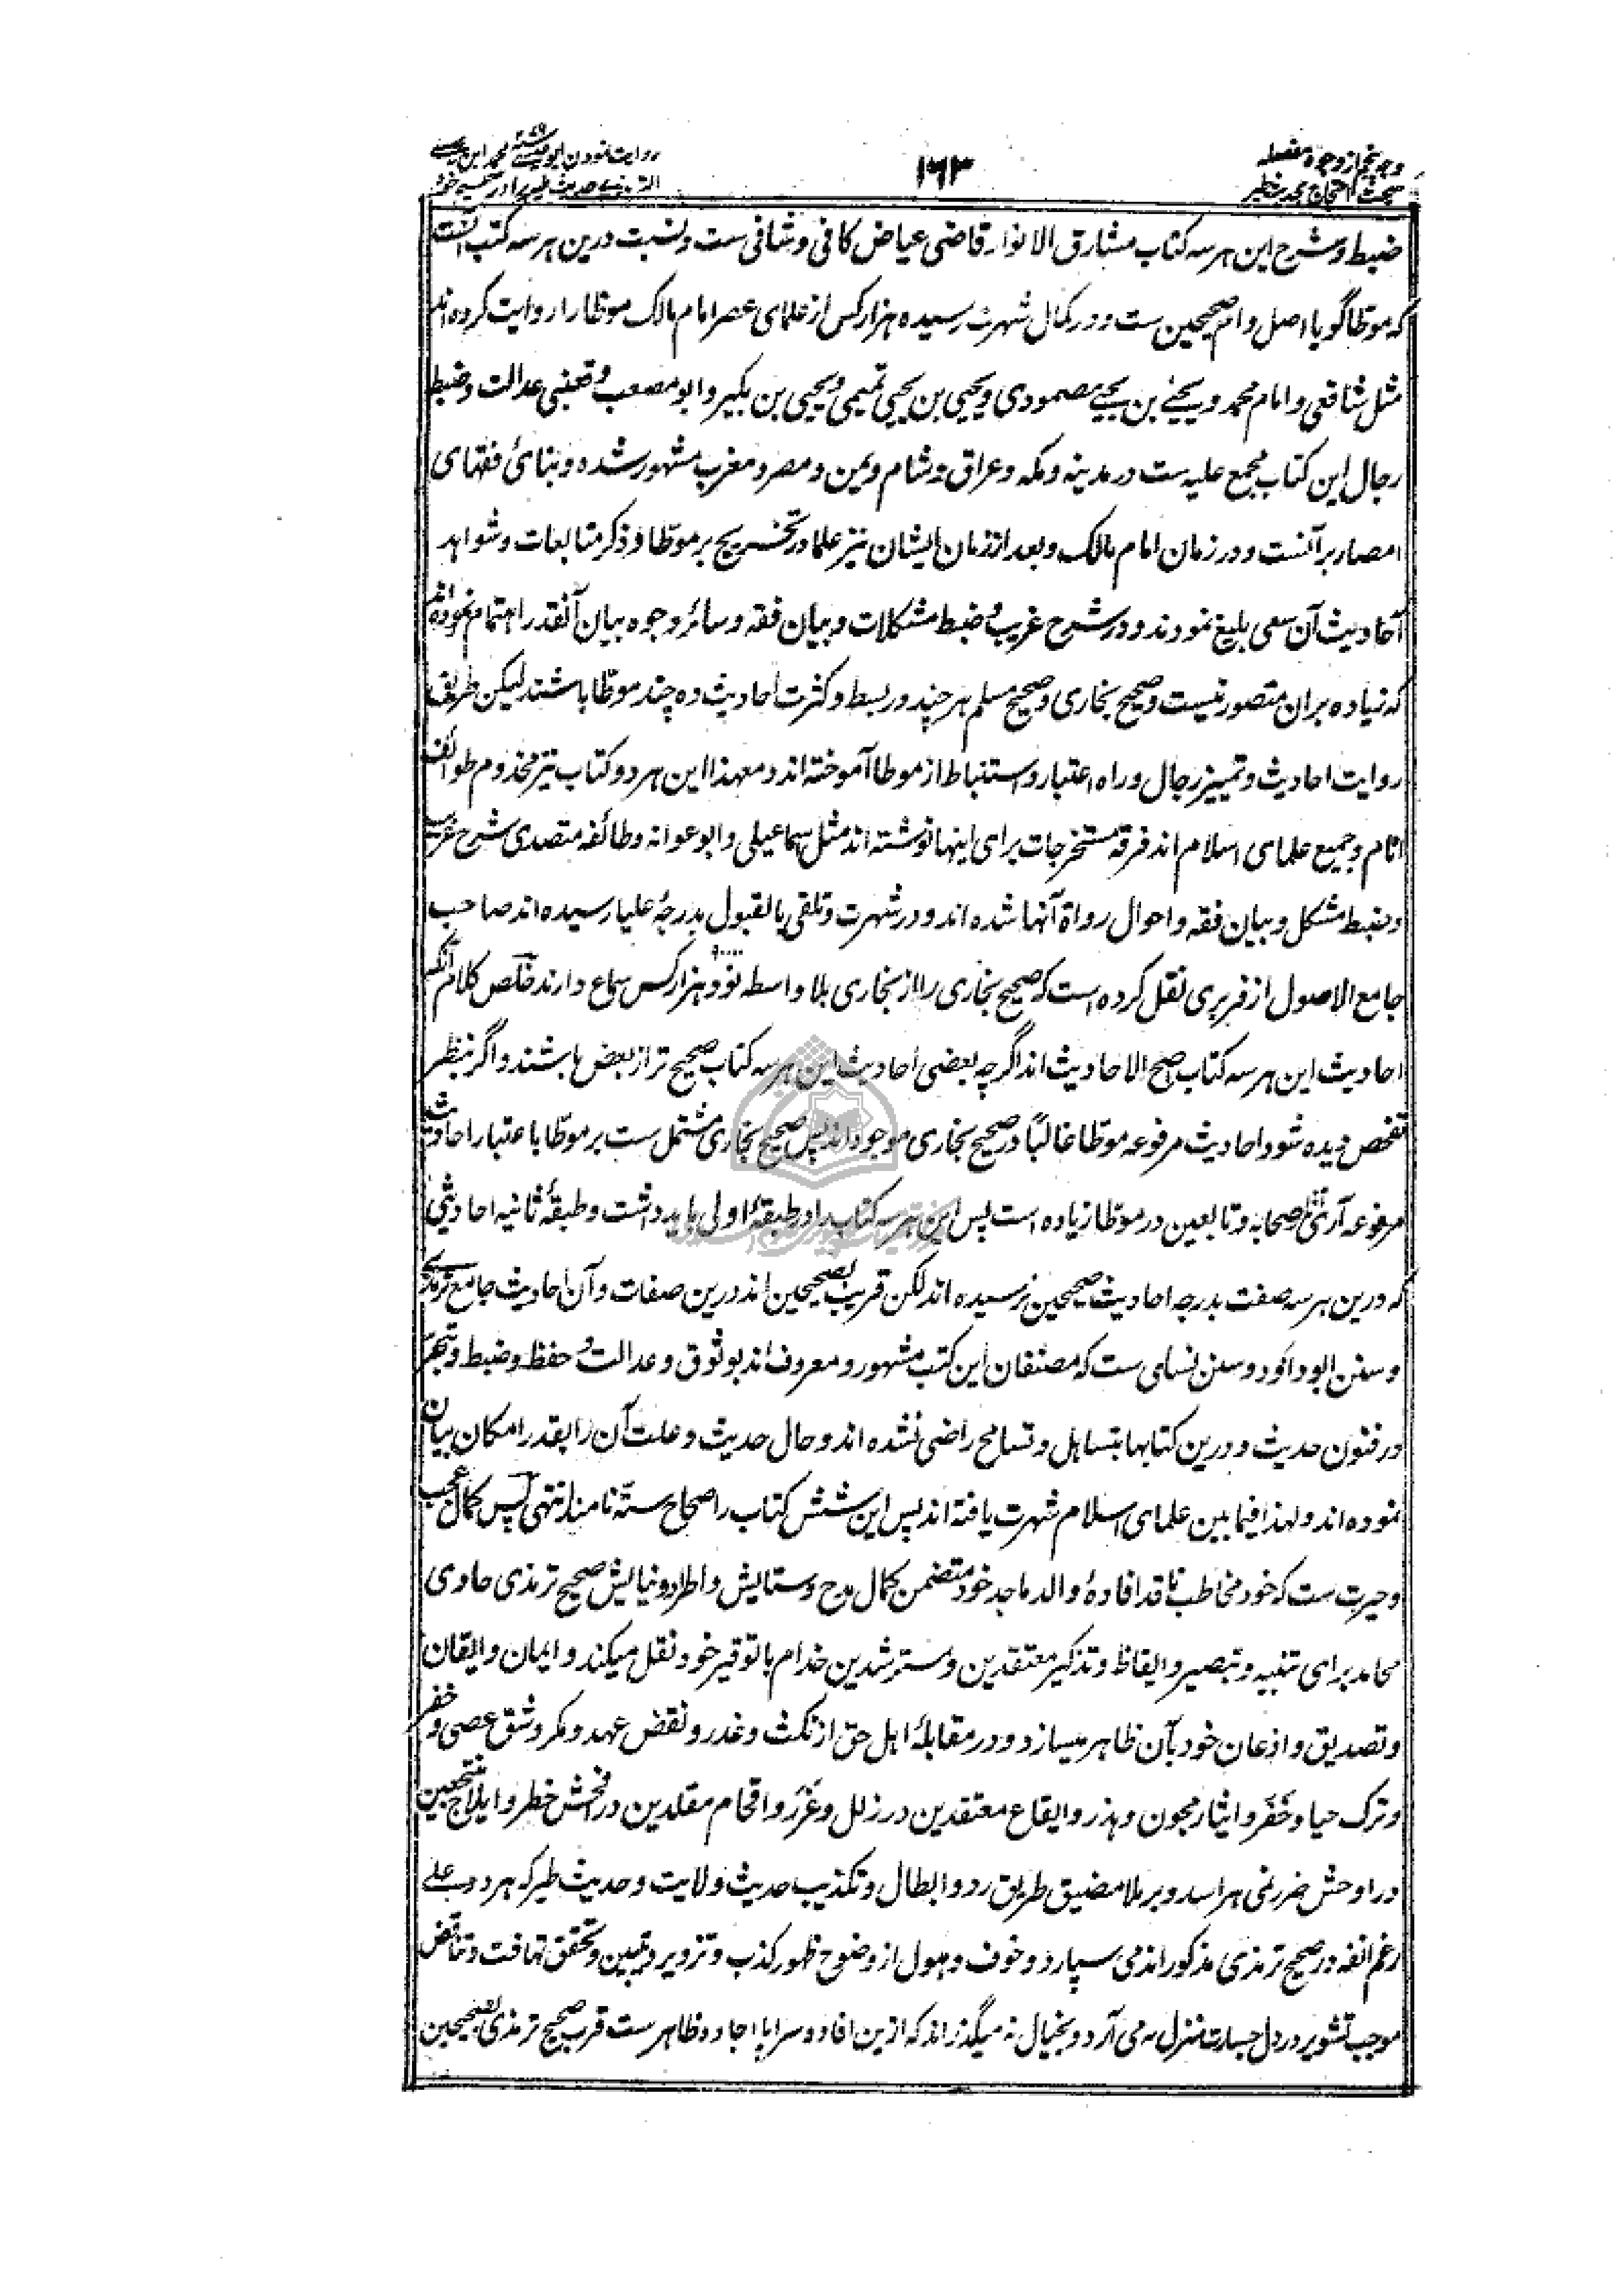 وجه پنجم از وجوه مفصله
صحت احتجاج بحدیث طیر
۱۶۳
روایت نمودن ابو عیسی محمد بن عیسی
الترمذی حدیث طیر را در صحیح خود
ضبط و شرح این هر سه کتاب مشارق الانوار قاضی عیاض کافی و شافی ست و نسبت درین هر سه کتب آنست
که موطا گویا اصل و ام صحیحین ست و در کمال شهرت رسیده هزار کس از علمای عصر امام مالک موطا را روایت کرده اند
مثل شافعی و امام محمد و یحیی بن یحیی مصمودی و یحیی بن یحیی تمیمی و یحیی بن بکیر و ابو مصعب و قعنبی عدالت و ضبط
رجال این کتاب مجمع علیه ست در مدینه و مکه و عراق و شام و یمن و مصر و مغرب مشهور شده و بنای فقهای
امصار بر آنست و در زمان امام مالک و بعد از زمان ایشان نیز علما در تخریج بر موطا و ذکر متابعات و شواهد
احادیث آن سعی بلیغ نمودند و در شرح غریب و ضبط مشکلات و بیان فقه و سائر وجوه بیان آنقدر اهتمام نموده اند
که زیاده بران متصور نیست و صحیح بخاری و صحیح مسلم هر چند در بسط و کثرت احادیث ده چند موطا باشند لیکن طریق
روایت احادیث و تمییز رجال و راه اعتبار و استنباط از موطا آموخته اند و معهذا این هر دو کتاب نیز مخدوم طوائف
انام و جمیع علمای اسلام اند فرقه مستخرجات برای اینها نوشته اند مثل اسماعیلی و ابو عوانه و طائفه متصدی شرح غریب
و ضبط مشکل و بیان فقه و احوال رواة آنها شده اند و در شهرت و تلقی بالقبول بدرجهٔ علیا رسیده اند صاحب
جامع الاصول از فربری نقل کرده است که صحیح بخاری را از بخاری بلا واسطه نود هزار کس سماع دارند خلص کلام آنکه
احادیث این هر سه کتاب اصح الاحادیث اند اگرچه بعضی احادیث این هر سه کتاب صحیح تر از بعض باشند و اگر بنظر
تفحص دیده شود احادیث مرفوعه موطا غالباً در صحیح بخاری موجود اند پس صحیح بخاری مشتمل ست بر موطا با عتبار احادیث
مرفوعه آری آثار صحابه و تابعین در موطا زیاده است پس این هر سه کتاب را در طبقهٔ اولی باید داشت و طبقهٔ ثانیه احادیثی
که درین هر سه صفت بدرجه احادیث صحیحین نرسیده اند لکن قریب بصحیحین اند درین صفات و آن احادیث جامع ترمذی
و سنن ابو داود و سنن نسای ست که مصنفان این کتب مشهور و معروف اند بوثوق و عدالت و حفظ و ضبط و تبحر
در فنون حدیث و درین کتابها بتساهل و تسامح راضی نشده اند و حال حدیث و علت آن را بقدر امکان بیان
نموده اند و لهذا فیما بین علمای اسلام شهرت یافته اند پس این شش کتاب را صحاح ستّه نامند انتهی پس کمال عجب
و حیرت ست که خود مخاطب ناقد افادهٔ والد ماجد خود متضمن کمال مدح و ستایش و اطرا و نیایش صحیح ترمذی حاوی
محامد برای تنبیه و تبصیر و ایقاظ و تذکیر معتقدین و مسترشدین خدام با توقیر خود نقل میکند و ایمان و ایقان
و تصدیق و اذعان خود بآن ظاهر میسازد و در مقابلهٔ اهل حق از نکث و غدر و نقض عهد و مکر و شق عصی و خفر
و ترک حیا و خفر و ایثار مجون و هذر و ایقاع معتقدین در زلل و غرر و اقحام مقلدین در افحش خطر و ایلاج منتجعین
در اوحش ضرر نمی هراسد و بر ملا مضیق طریق رد و ابطال و تکذیب حدیث ولایت و حدیث طیر که هر دو علی
رغم انفه در صحیح ترمذی مذکور اند می سپارد و خوف و هول از وضوح ظهور کذب و تزویر و تبیین و تحقق تهافت و تناقض
موجب تشویر در دل جسارت منزل نمی آرد و بخیال نمیگذراند که ازین افاده سراپا اجاده ظاهر ست قرب صحیح ترمذی بصحیحین